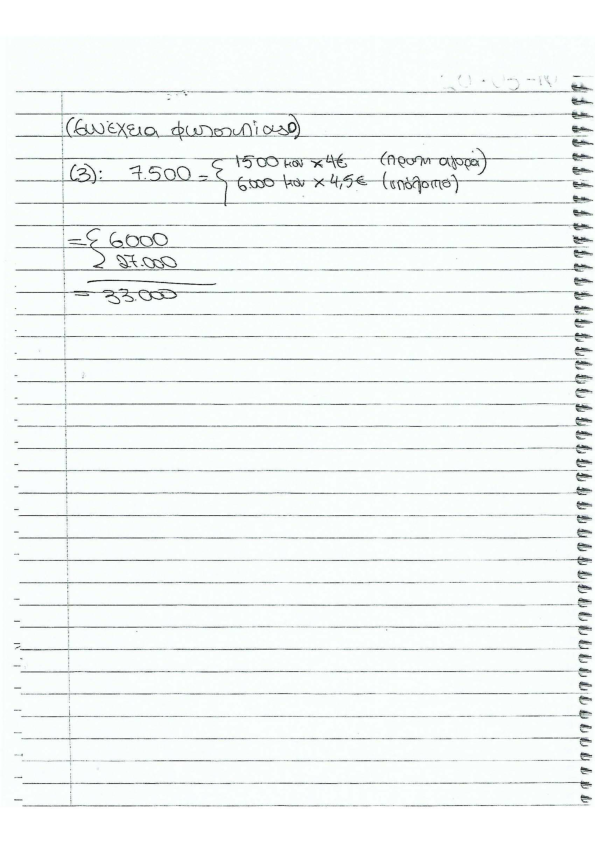 (Συνέχεια φωτοτυπίας)
(3): 7.500 = { 1500 μον × 4€ (πρώτη αγορά)
6000 μον × 4,5€ (υπόλοιπο)
= { 6000
27.000
= 33.000